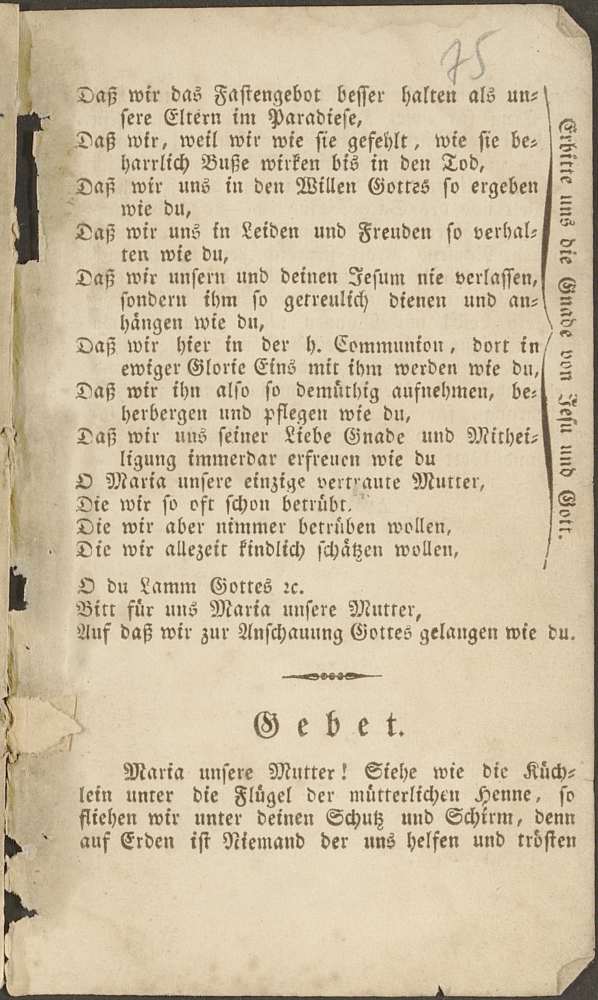 75
Daß wir das Fastengebot besser halten als un⸗
sere Eltern im Paradiese,
Daß wir, weil wir wie sie gefehlt, wie sie be⸗
harrlich Buße wirken bis in den Tod,
Daß wir uns in den Willen Gottes so ergeben
wie du,
Daß wir uns in Leiden und Freuden so verhal⸗
ten wie du,
Daß wir unsern und deinen Jesum nie verlassen,
sondern ihm so getreulich dienen und an⸗
hängen wie du,
Daß wir hier in der h. Communion, dort in
ewiger Glorie Eins mit ihm werden wie du,
Daß wir ihn also so demüthig aufnehmen, be⸗
herbergen und pflegen wie du,
Daß wir uns seiner Liebe Gnade und Mithei⸗
ligung immerdar erfreuen wie du
O Maria unsere einzige vertraute Mutter,
Die wir so oft schon betrübt.
Die wir aber nimmer betrüben wollen,
Die wir allezeit kindlich schätzen wollen,
Erbitte uns die Gnade von Jesu und Gott.
O du Lamm Gottes ꝛc.
Bitt für uns Maria unsere Mutter,
Auf daß wir zur Anschauung Gottes gelangen wie du.
Gebet.
Maria unsere Mutter! Siehe wie die Küch⸗
lein unter die Flügel der mütterlichen Henne, so
fliehen wir unter deinen Schutz und Schirm, denn
auf Erden ist Niemand der uns helfen und trösten